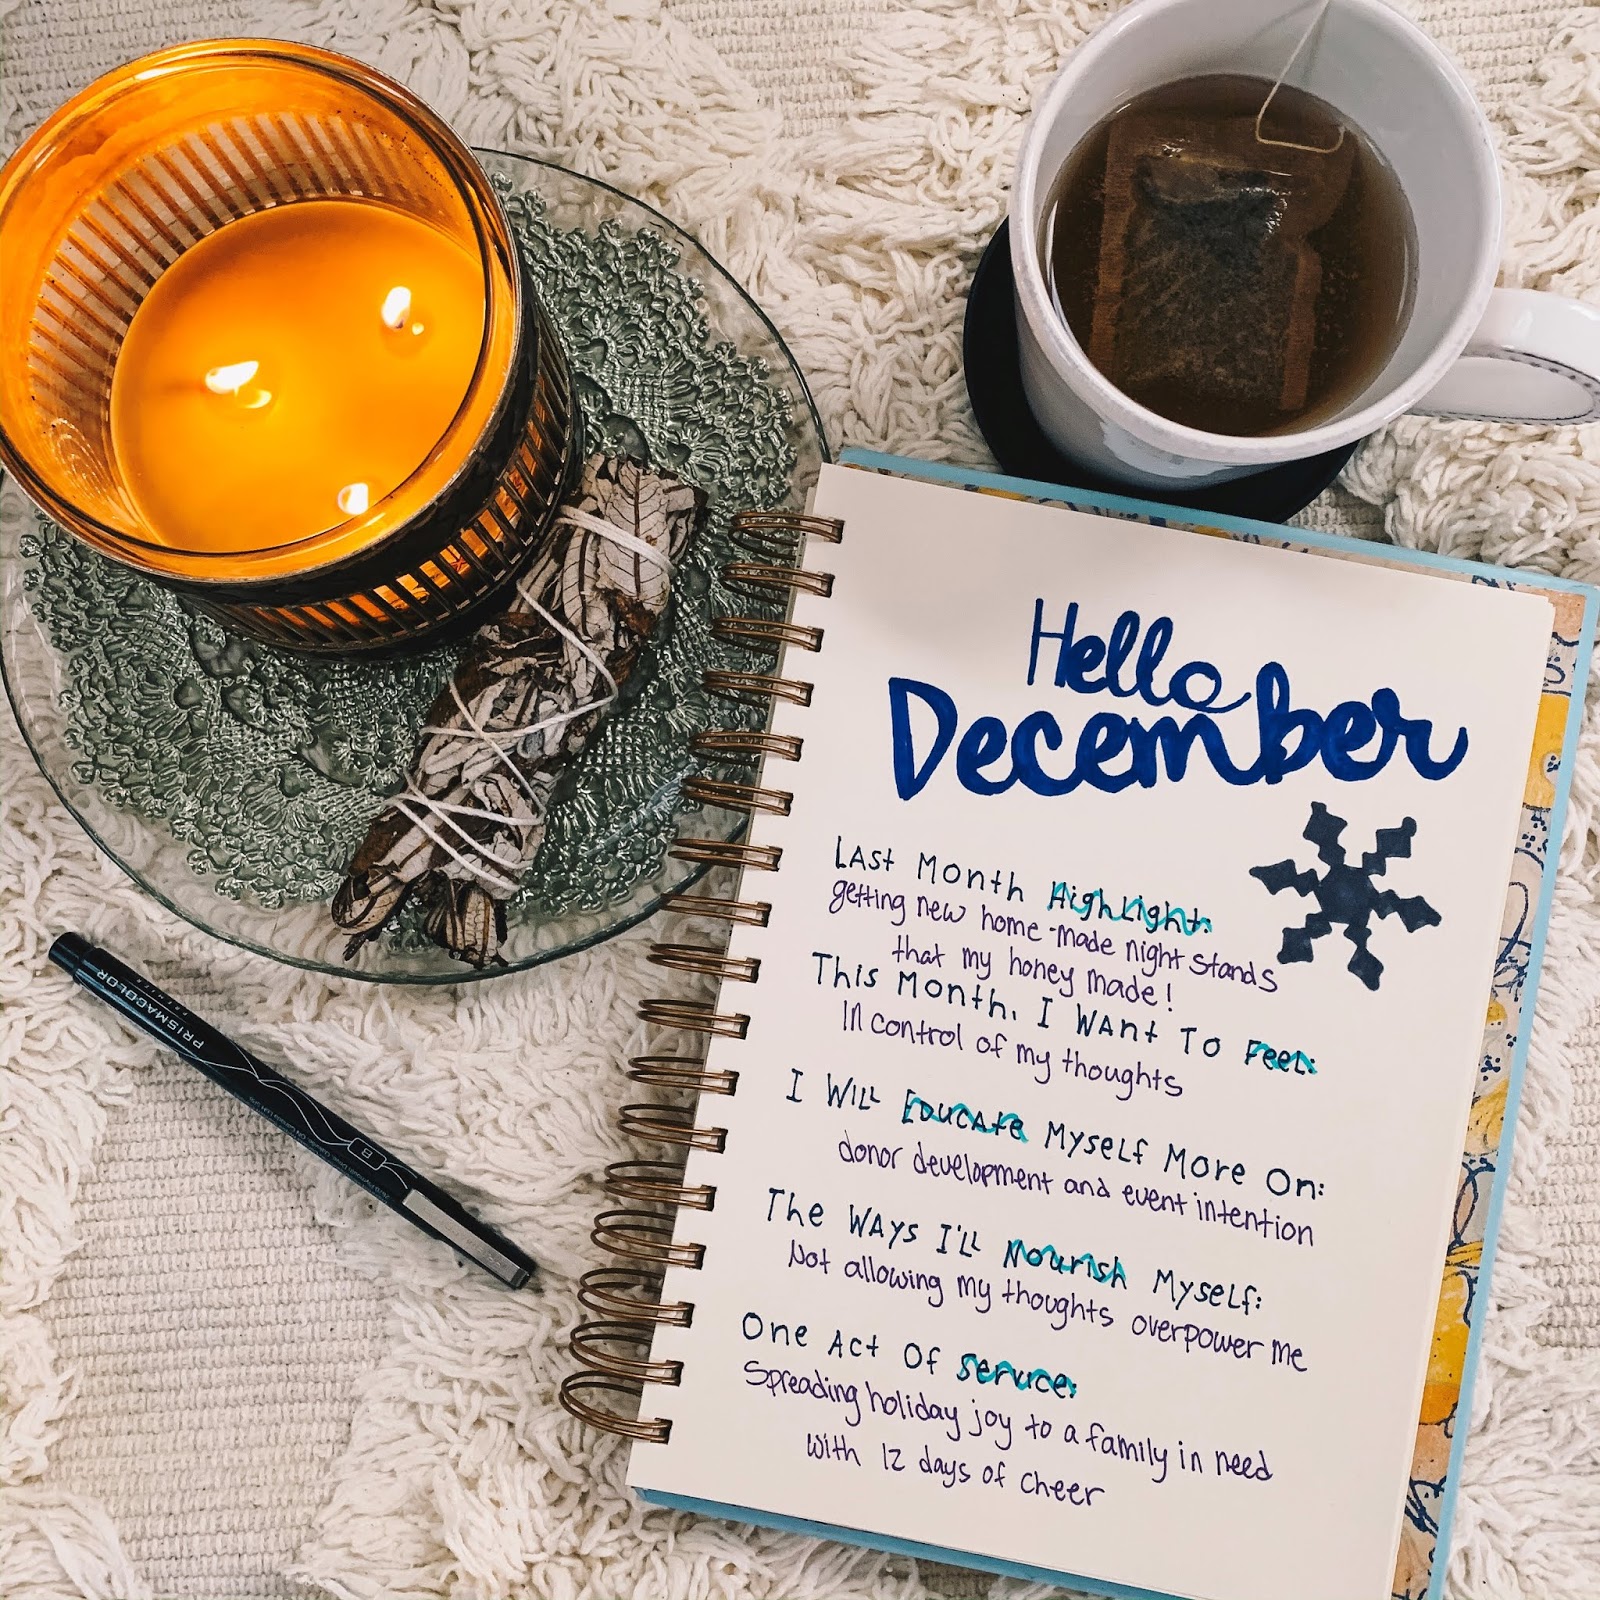 Hello
December
Last Month Highlight:
getting new home-made night stands
that my honey made!
This Month, I Want To Feel:
In control of my thoughts
I Will Educate Myself More On:
donor development and event intention
The Ways I'll Nourish Myself:
Not allowing my thoughts overpower me
One Act Of Service:
Spreading holiday joy to a family in need
with 12 days of cheer
PRISMACOLOR
PREMIER
B